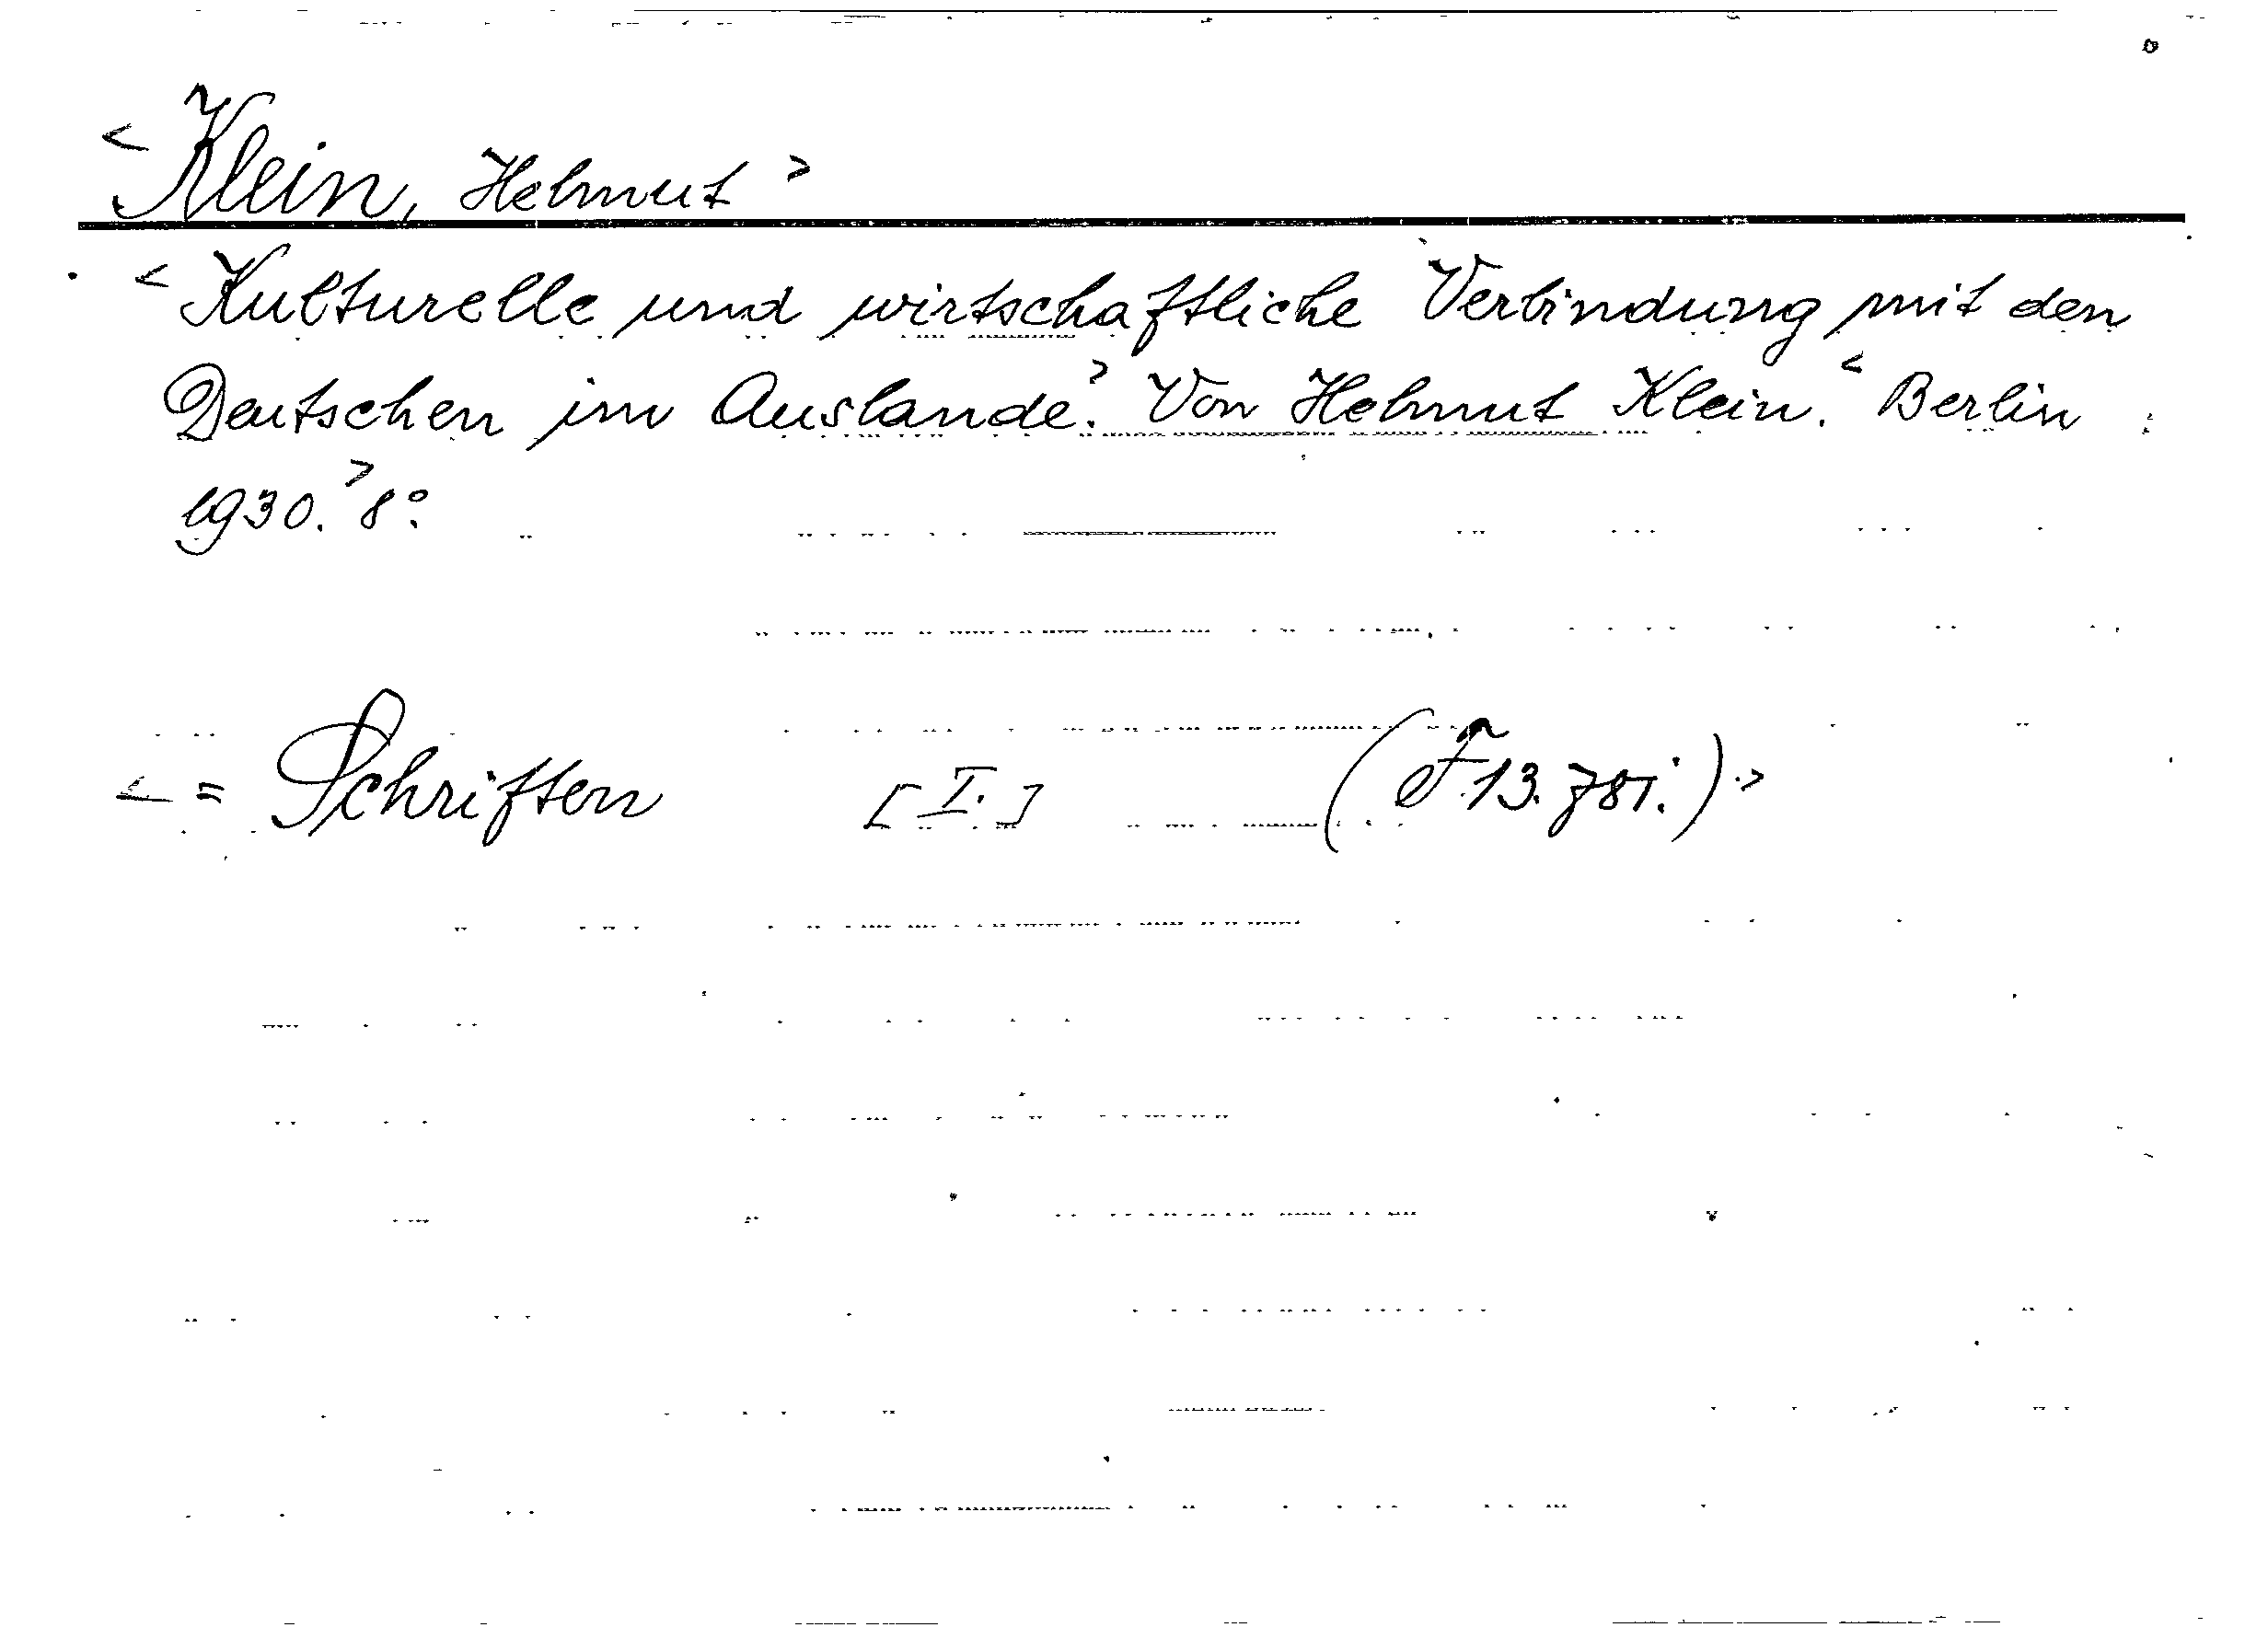 <Klein, Helmut>
<Kulturelle und wirtschaftliche Verbindung mit den
Deutschen im Auslande.> Von Helmut Klein. <Berlin
1930.> 8°.
<= Schriften [I.] (F 13. 781.)>